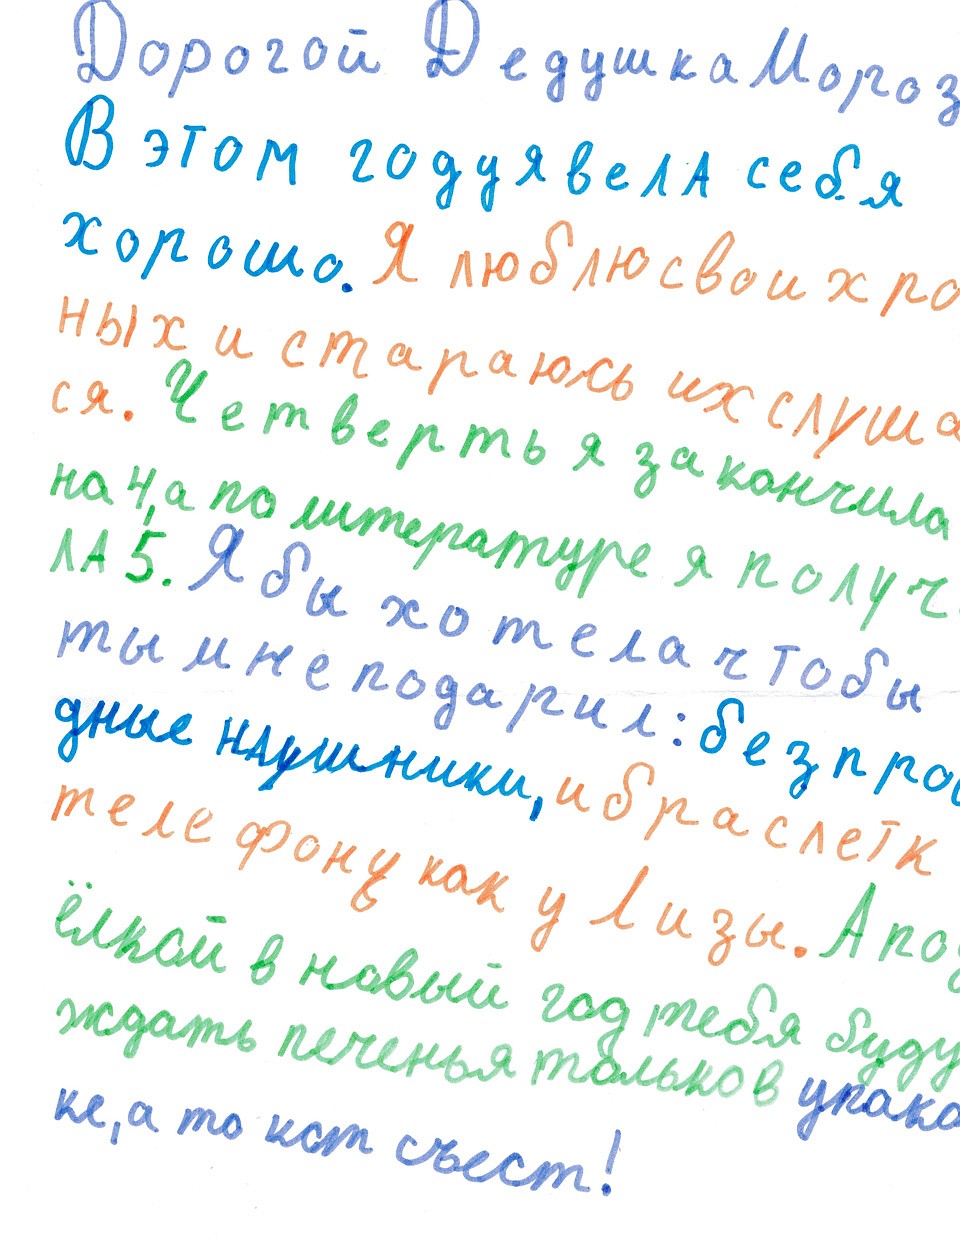 Дорогой Дедушка Мороз
В этом году я вела себя
хорошо. Я люблю своих
ных и стараюсь их слуша
ся. Четверть я закончила
на 4, а по литературе я получ
ла 5. Я бы хотела чтобы
ты мне подарил: безпров
дные наушники, и браслет к
телефону как у Лизы. А под
ёлкой в новый год тебя будут
ждать печенья только в упако
ке, а то кот съест!